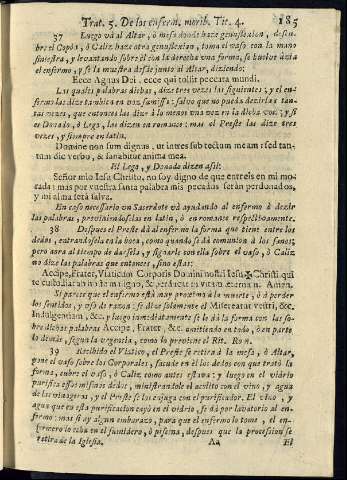 Trat. 5. De los enferm. morib. Tit. 4. 185
37 Luego và al Altar, ò mesa donde haze genuflexion, descu-
bre el Copòn, ò Caliz haze otra genuflexion, toma el vaso con la mano
siniestra, y levantando sobre èl con la derecha una forma, se buelve àzia
el enfermo, y se la muestra desde junto al Altar, diziendo:
Ecce Agnus Dei, ecce qui tollit peccata mundi.
Las quales palabras dichas, dize tres vezes las siguientes; y el en-
fermo las dize tambien en voz sumissa: salvo que no pueda dezirlas tan-
tas vezes, que entonces las dize à lo menos una vez en la dicha voz; y si
es Donado, ò Lego, las dizen en romance: mas el Preste las dize tres
vezes, y siempre en latin.
Domine non sum dignus, ut intres sub tectum meum: sed tan-
tum dic verbo, & sanabitur anima mea.
El Lego, y Donado dizen assi:
Señor mio Iesu Christo, no soy digno de que entreis en mi mo-
rada; mas por vuestra santa palabra mis pecados seràn perdonados,
y mi alma serà salva.
En caso necessario un Sacerdote và ayudando al enfermo à dezir
las palabras, previniendoselas en latin, ò en romance respectivamente.
38 Despues el Preste dà al enfermo la forma que tiene entre los
dedos, entrandosela en la boca, como quando se dà comunion à los sanos;
pero aora al tiempo de darsela, y signarle con ella sobre el vaso, ò Caliz
no dize las palabras que entonces, sino estas:
Accipe, Frater, Viaticum Corporis Domini nostri Iesu ✠ Christi qui
te custodiat ab hoste maligno, & perducat in vitam æternam. Amen.
Si parece que el enfermo està muy proximo à la muerte, ò à perder
los sentidos, y uso de razon; se dize solamente el Misereatur vestri, &c.
Indulgentiam, &c. y luego immediatamente se le dà la forma con las so-
bre dichas palabras Accipe, Frater, &c. omitiendo en todo, ò en parte
lo demàs, segun la urgencia, como lo previene el Rit. Rom.
39 Recibido el Viatico, el Preste se retira à la mesa, ò Altar,
pone el vaso sobre los Corporales, sacude en èl los dedos con que tratò la
forma, cubre el vaso, ò Caliz como antes estava; y luego en el vidrio
purifica essos mismos dedos, ministrandole el acolito con el vino, y agua
de las vinageras, y el Preste se los enjuga con el purificador. El vino, y
agua que en esta purificacion cayò en el vidrio, se dà por lavatorio al en-
fermo: mas si ay algun embarazo, para que el enfermo lo tome, el en-
fermero lo echa en el sumidero, ò piscina, despues que la procession se
retira de la Iglesia. Aa El